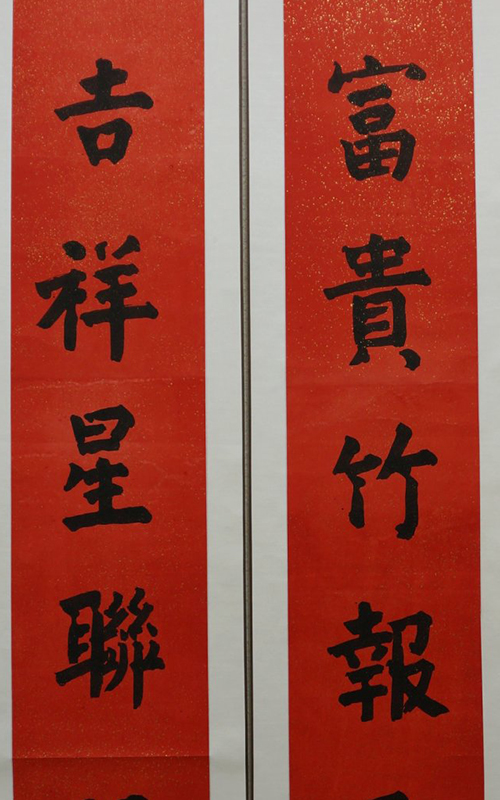 富貴竹報
吉祥星聯